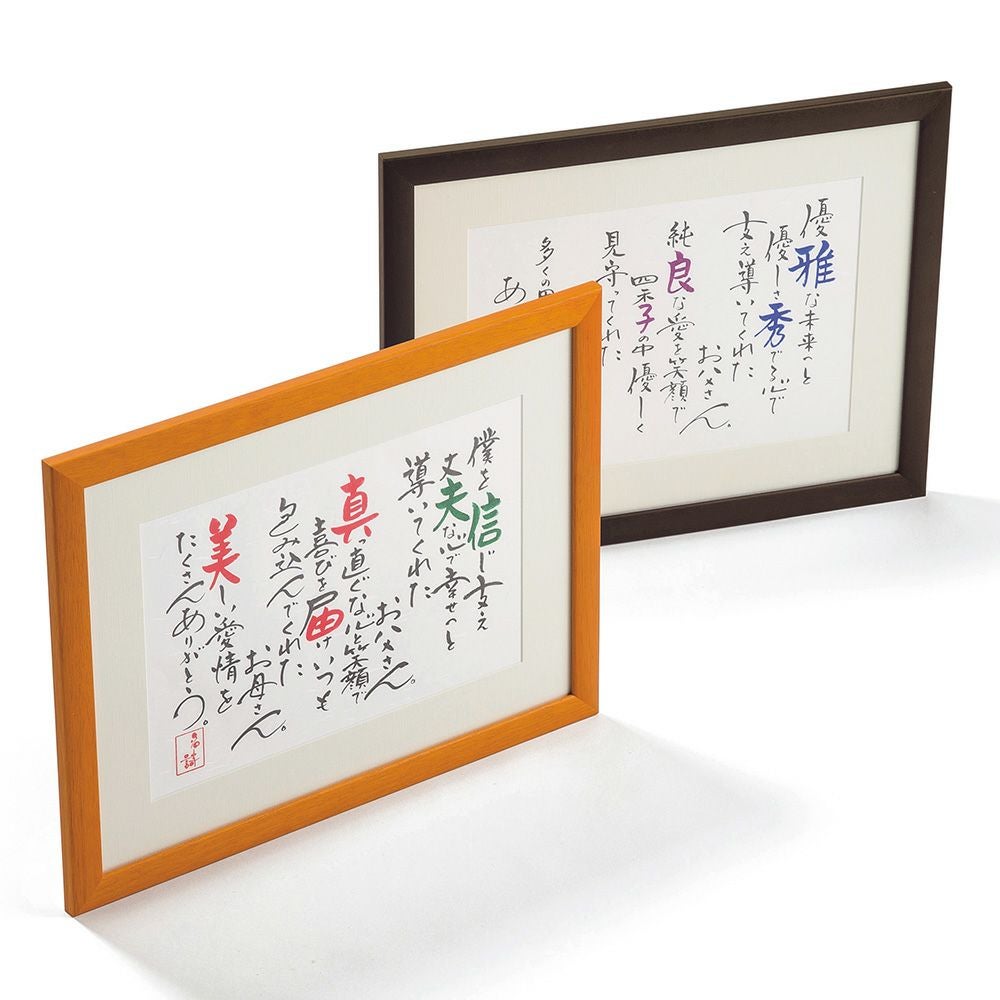 僕を信じ支え
丈夫な心で幸せへと
導いてくれた
お父さん。
真っ直ぐな心と笑顔で
喜びを届けいつも
包み込んでくれた
お母さん。
美しい愛情を
たくさんありがとう。
優雅な未来へと
優しさ秀でる心で
支え導いてくれた
お父さん。
純良な愛を笑顔で
四示子の中優しく
見守ってくれた
多くの
あ